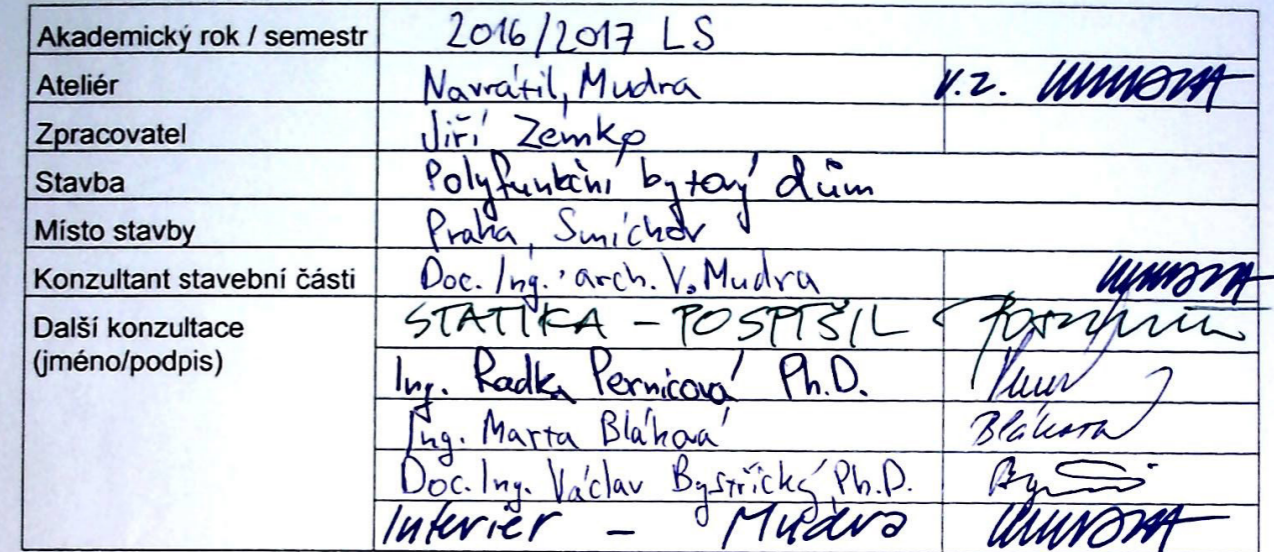 Akademický rok / semestr 2016/2017 LS
Ateliér Navrátil, Mudra V.Z.
Zpracovatel Jiří Zemko
Stavba Polyfunkční bytový dům
Místo stavby Praha, Smíchov
Konzultant stavební části Doc. Ing. arch. V. Mudra
Další konzultace STATIKA - POSPÍŠIL
(jméno/podpis) Ing. Radka Pernicová Ph.D.
Ing. Marta Bláhová Bláhová
Doc. Ing. Václav Bystřický, Ph.D.
Interiér - Mudra